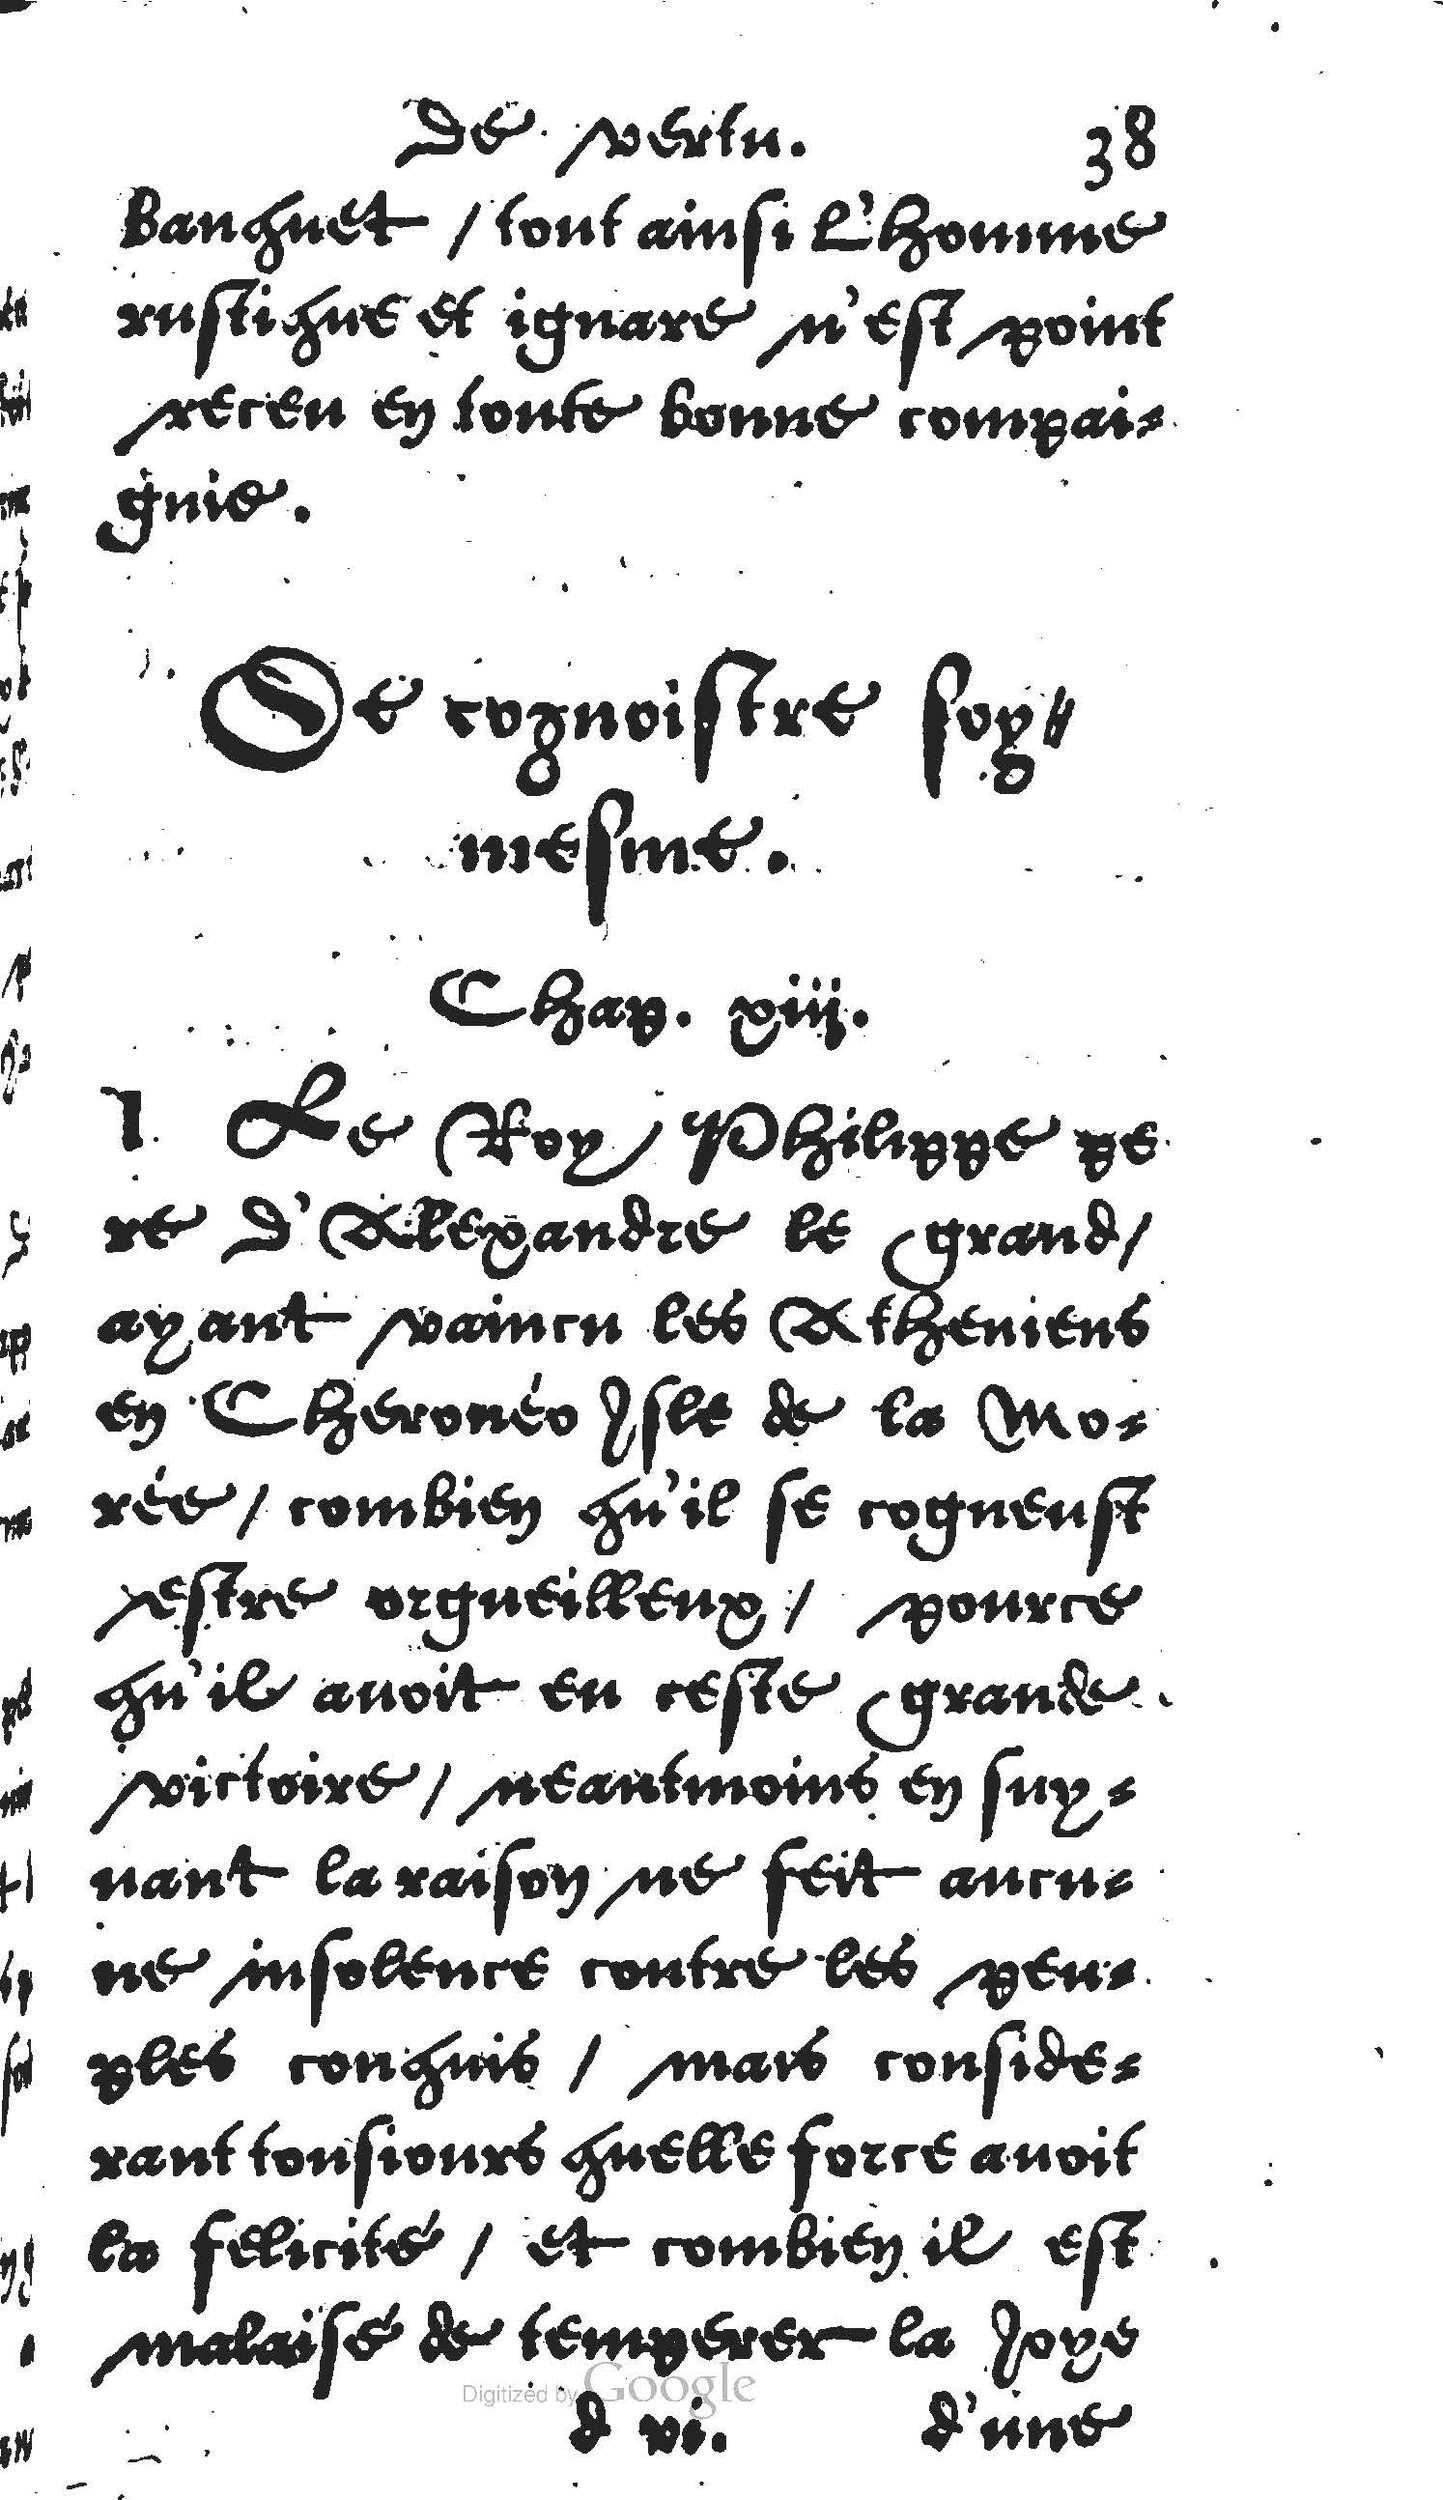 De vertu. 38
Banquet / tout ainsi L'homme
rustique et ignare n'est point
receu en toute bonne compai=
gnie.
De cognoistre soy=
mesme.
Chap. xiij.
1 Le Roy Philippe pe
re D'Alexandre le grand/
ayant vaincu les Atheniens
en Cheronéo Isle de la Mo=
rée / combien qu'il se cogneust
estre orgueilleux / pource
qu'il avoit eu ceste grande
victoire / neantmoins en suy=
uant la raison ne feit aucu=
ne insolence contre les peu=
ples conquis / mais conside=
rant tousiours quelle force auoit
la felicité / et combien il est
malaisé de temperer la Joye
Digitized by Google
d vi. d'une